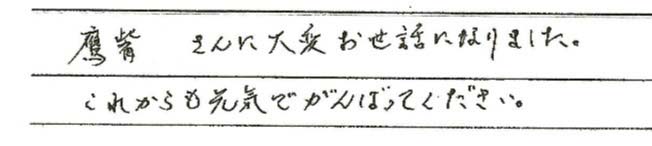 鷹觜 さんに大変お世話になりました。
これからも元気でがんばってください。